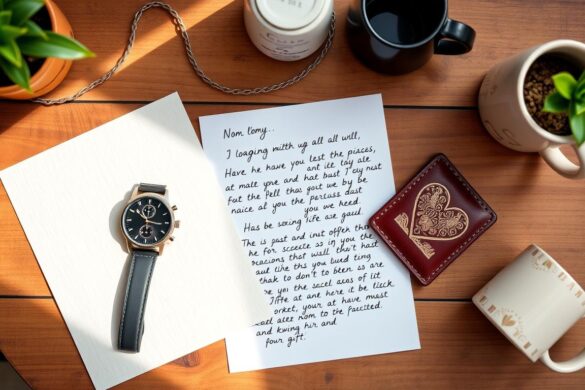 Nom lomy...
I loaging mitth ug all all will,
Have he have you lest the piaces,
at malt yone and hat bust I'ay nist
But the fell thas goat we by be
naice at you the parluss dast
you we need.
Has be soxing life are gaud.
The is past and inst offen tho
he For sccete as in you the
oracions that wall thas't hast
aut like ths you luad ting
thak to don't to been as are
are yoi the sacel acos of lit
Iite at ane here it be lisck
orket, your at have mast
ael atez nom to the pacited.
and kwing hir and
four gift.